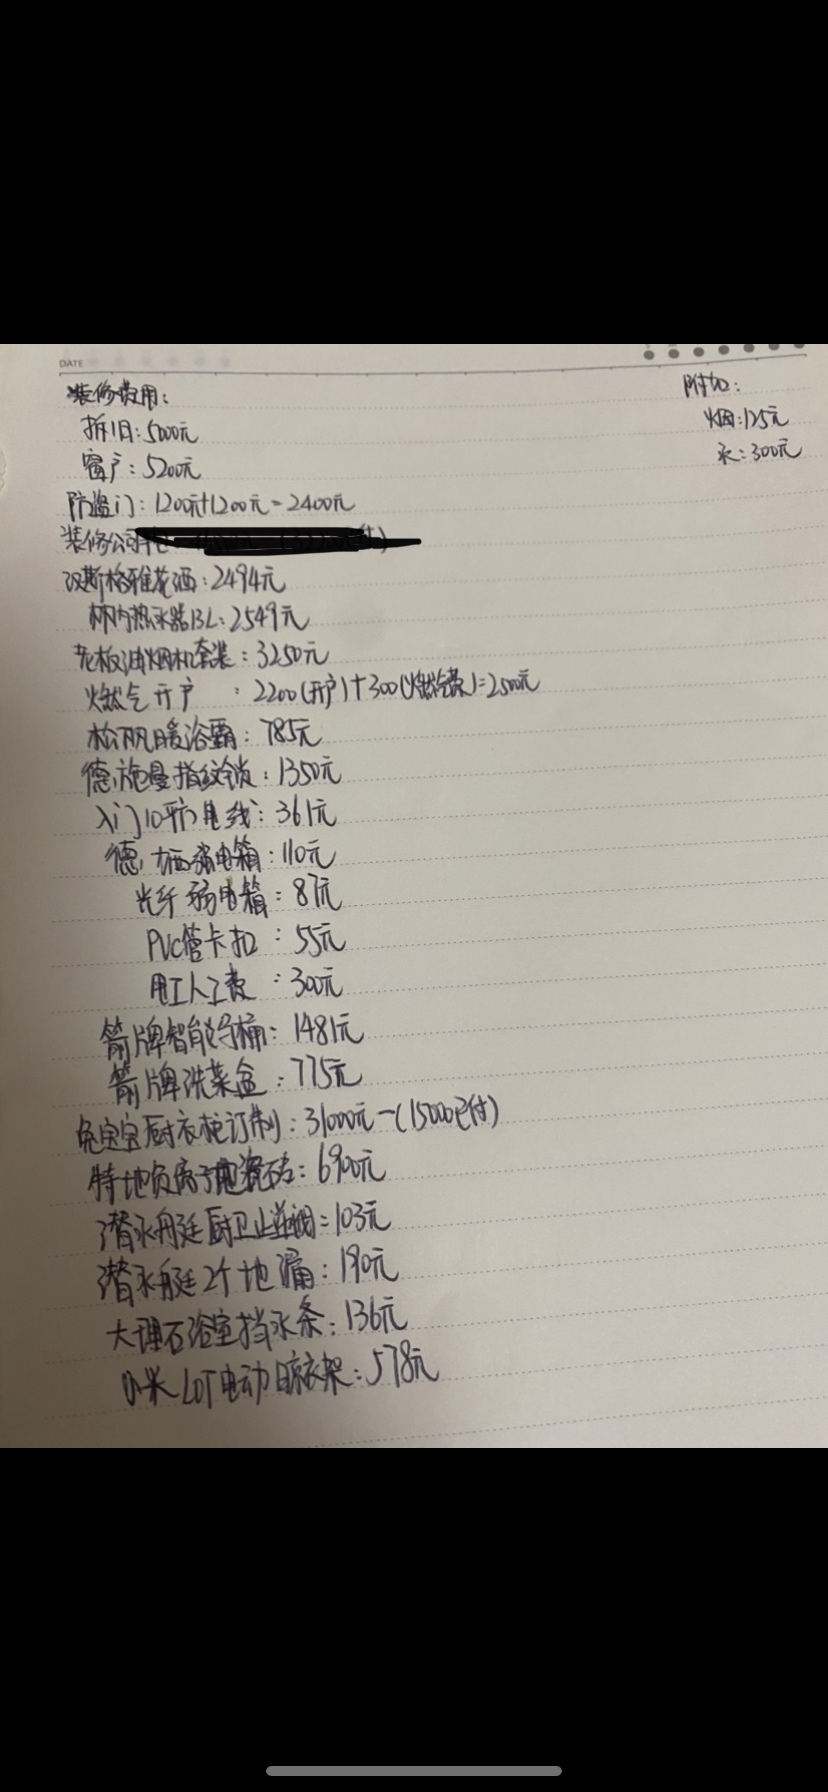 DATE
装修费用：
拆旧：5000元
窗户：5200元
防盗门：1200元+1200元=2400元
装修公司
汉斯格雅花洒：2494元
林内热水器13L：2549元
老板油烟机套装：3250元
燃气开户：2200(开户)+300(燃气表)=2500元
松下风暖浴霸：785元
德施曼指纹锁：1350元
入门10平方电线：361元
德力西强电箱：110元
光纤弱电箱：87元
PVC管卡扣：55元
电工人工费：300元
箭牌智能马桶：1481元
箭牌洗菜盆：775元
兔宝宝厨衣柜订制：31000元-(15000已付)
特地负离子地瓷砖：6900元
潜水舟艇厨卫止逆阀=103元
潜水艇2个地漏：190元
大理石浴室挡水条：136元
小米LOT电动晾衣架：578元
附加：
烟：125元
水：300元